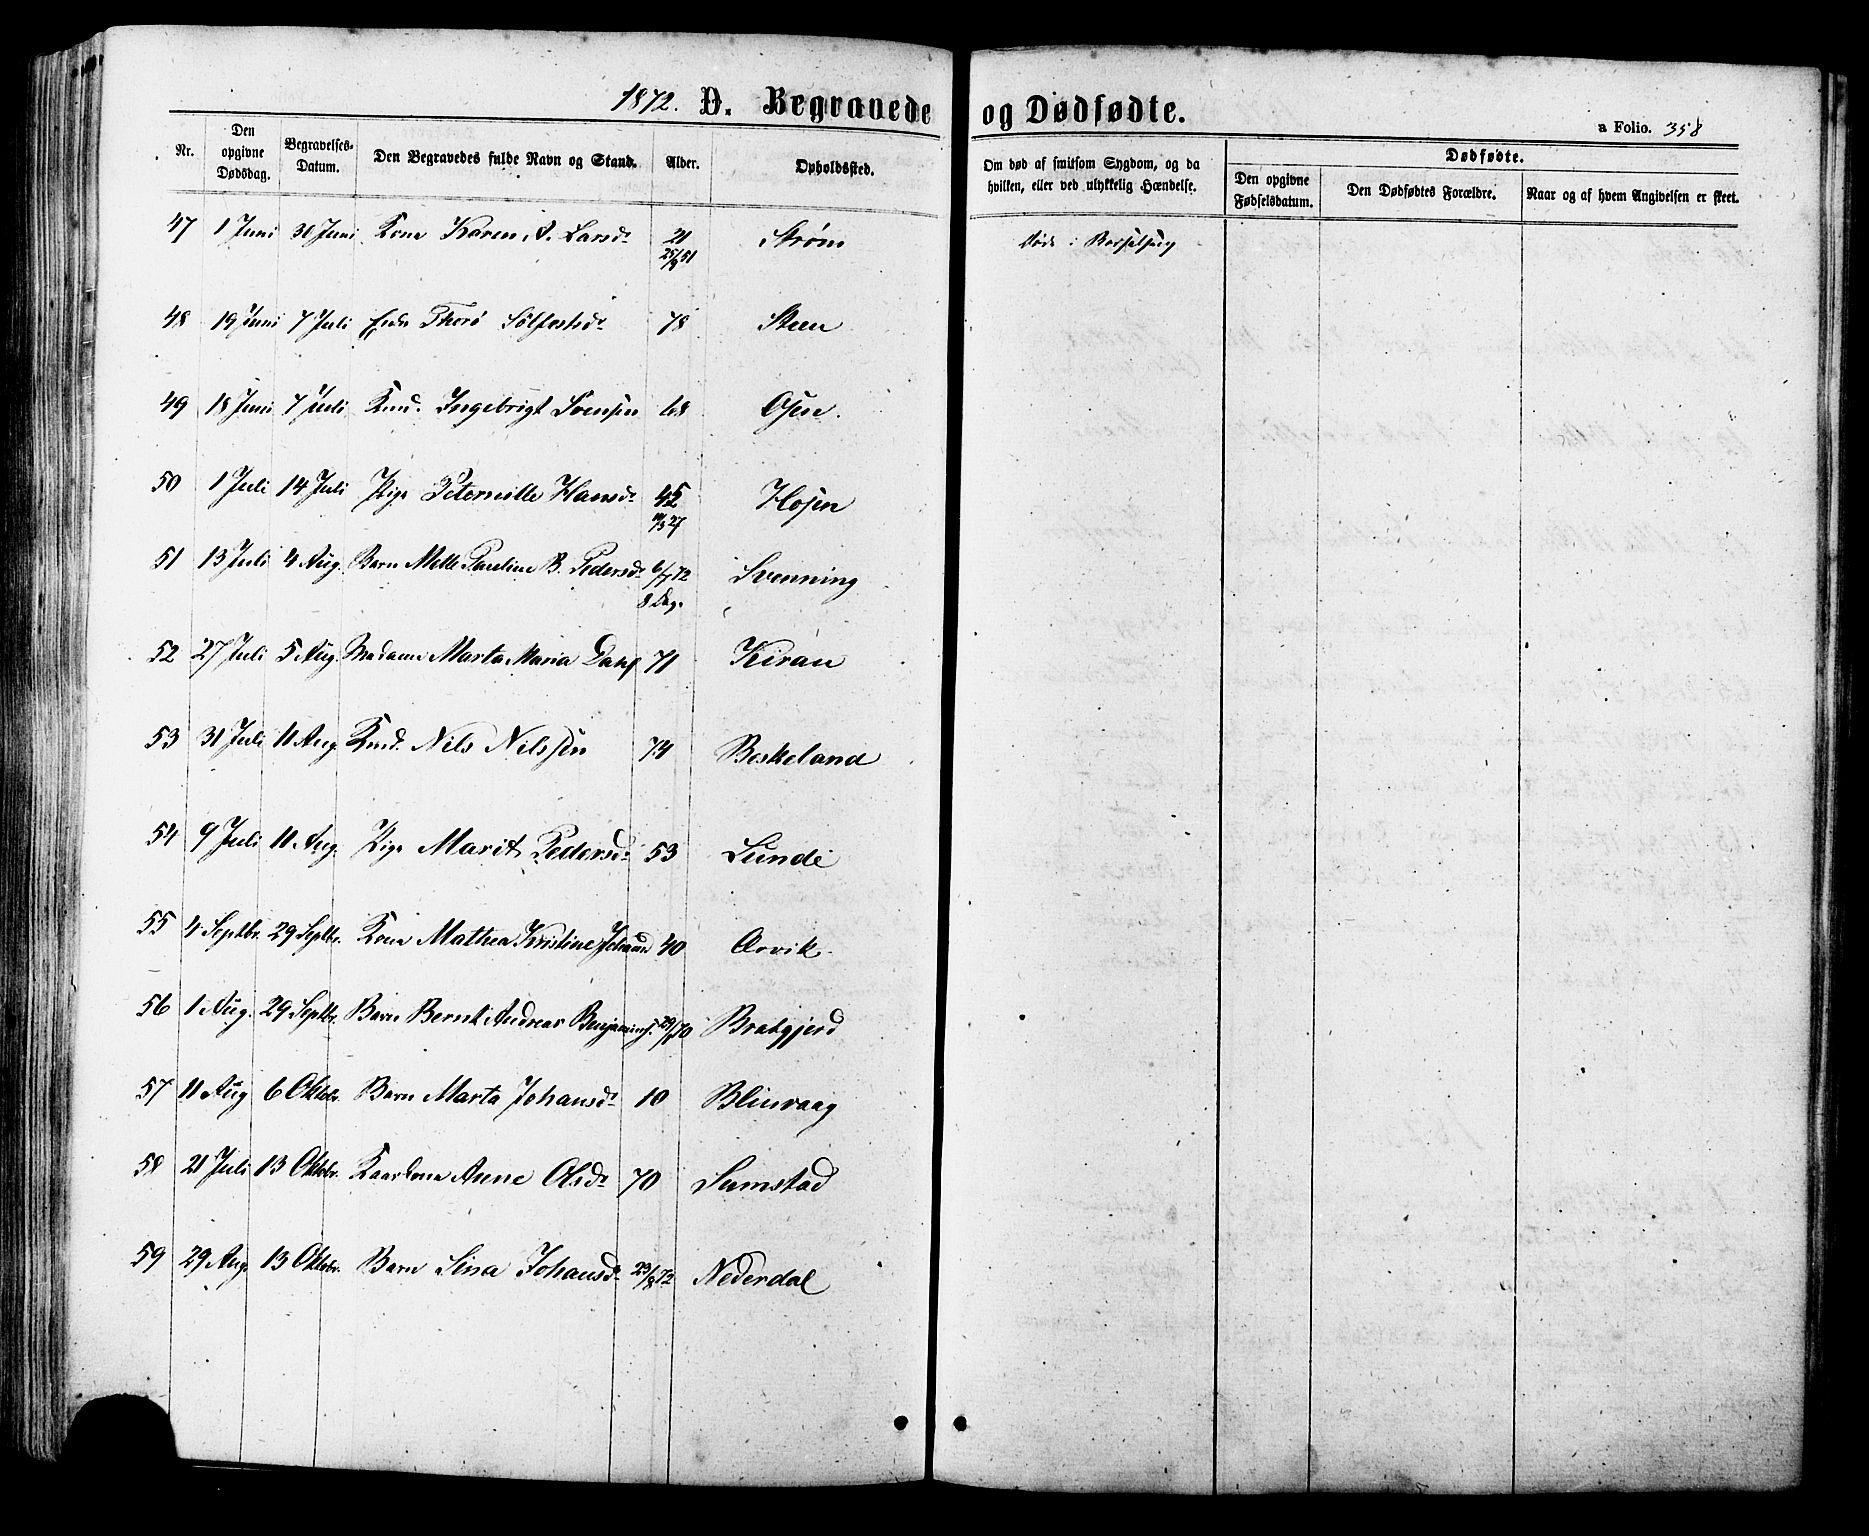 1872. D. Begravede og Dødfødte.
a Folio. 358
Nr. Den opgivne Dødsdag. Begravelses-Datum. Den Begravedes fulde Navn og Stand. Alder. Opholdssted. Om død af smitsom Sygdom, og da hvilken, eller ved ulykkelig Hændelse. Dødfødte. Den opgivne Fødselsdatum. Den Dødfødtes Forældre. Naar og af hvem Angivelsen er skeet.
47 1 Juni 30 Juni Kone Karen A. Larsd. 21 25/9 51 Strøm Døde i Barselseng
48 19 Juni 7 Juli Enke Thorø Sølfestsd. 78 Steen
49 18 Juni 7 Juli Kmd. Ingebrigt Svensen 68 Osen.
50 1 Juli 14 Juli Pige Peternille Hansd. 45 27 Hosen
51 13 Juli 4 Aug. Barn Mette Pauline B. Pedersd. 6/7 72 8 Dag. Svenning
52 27 Juli 5 Aug. Madame Marta Maria Dahl 71 Kiran
53 31 Juli 11 Aug. Kmd. Nils Nilssen 74 Beskeland
54 9 Juli 11 Aug. Pige Marit Pedersd. 53 Sunde
55 4 Septbr. 29 Septbr. Kone Mathea Kristine 40 Arvik
56 1 Aug. 29 Septbr. Barn Bernt Andreas Benjamins. 70 Bratgjerd
57 11 Aug 6 Oktobr. Barn Marta Johansd. 10 Blinvaag
58 21 Juli 13 Oktobr. Kaarkone Anne Olsd. 70 Sumstad
59 29 Aug. 13 Oktobr. Barn Sina Johansd. 23/8 72 Nederdal